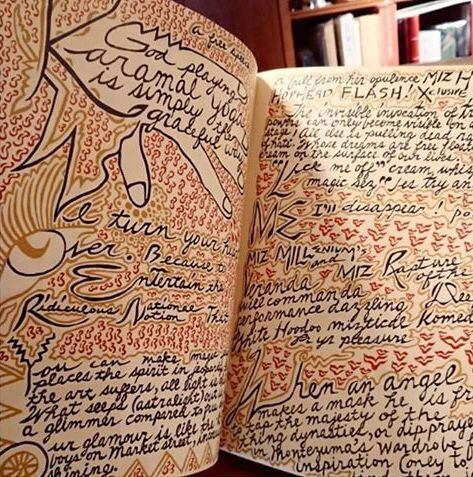 a free
God playing
Karamal Yoga
is simply the
grateful way
I turn your
over. Because to
Entertain the
Ridiculous National
Notion is This
You can make magic
places the spirit in jeopardy
the art suffers, all light is
What seeps (astralight) out is
a glimmer compared to
Our glamour is like the
boys on Market street,
shining.
a full from her opulence MIZ H
HOPHEAD FLASH! Xclusive
The invisible invocation of
powers can only become visible on
stage! All else is pulling dead
of hats. Whose dreams are free
cream on the surface of our lives.
"Lick me off" cream, which
magic sez "Jes try
ME I'll disappear!
MIZ MILLENIUM'S
and MIZ Rapture
of the
Veranda
will command a
performance dazzling
White Hoodoo mizticde Komed
Pryz pleasure
When an angel
makes a mask he is
tap the majesty of the
thing dynasties, or dip
in Montezuma's Wardrobe
inspiration (only to